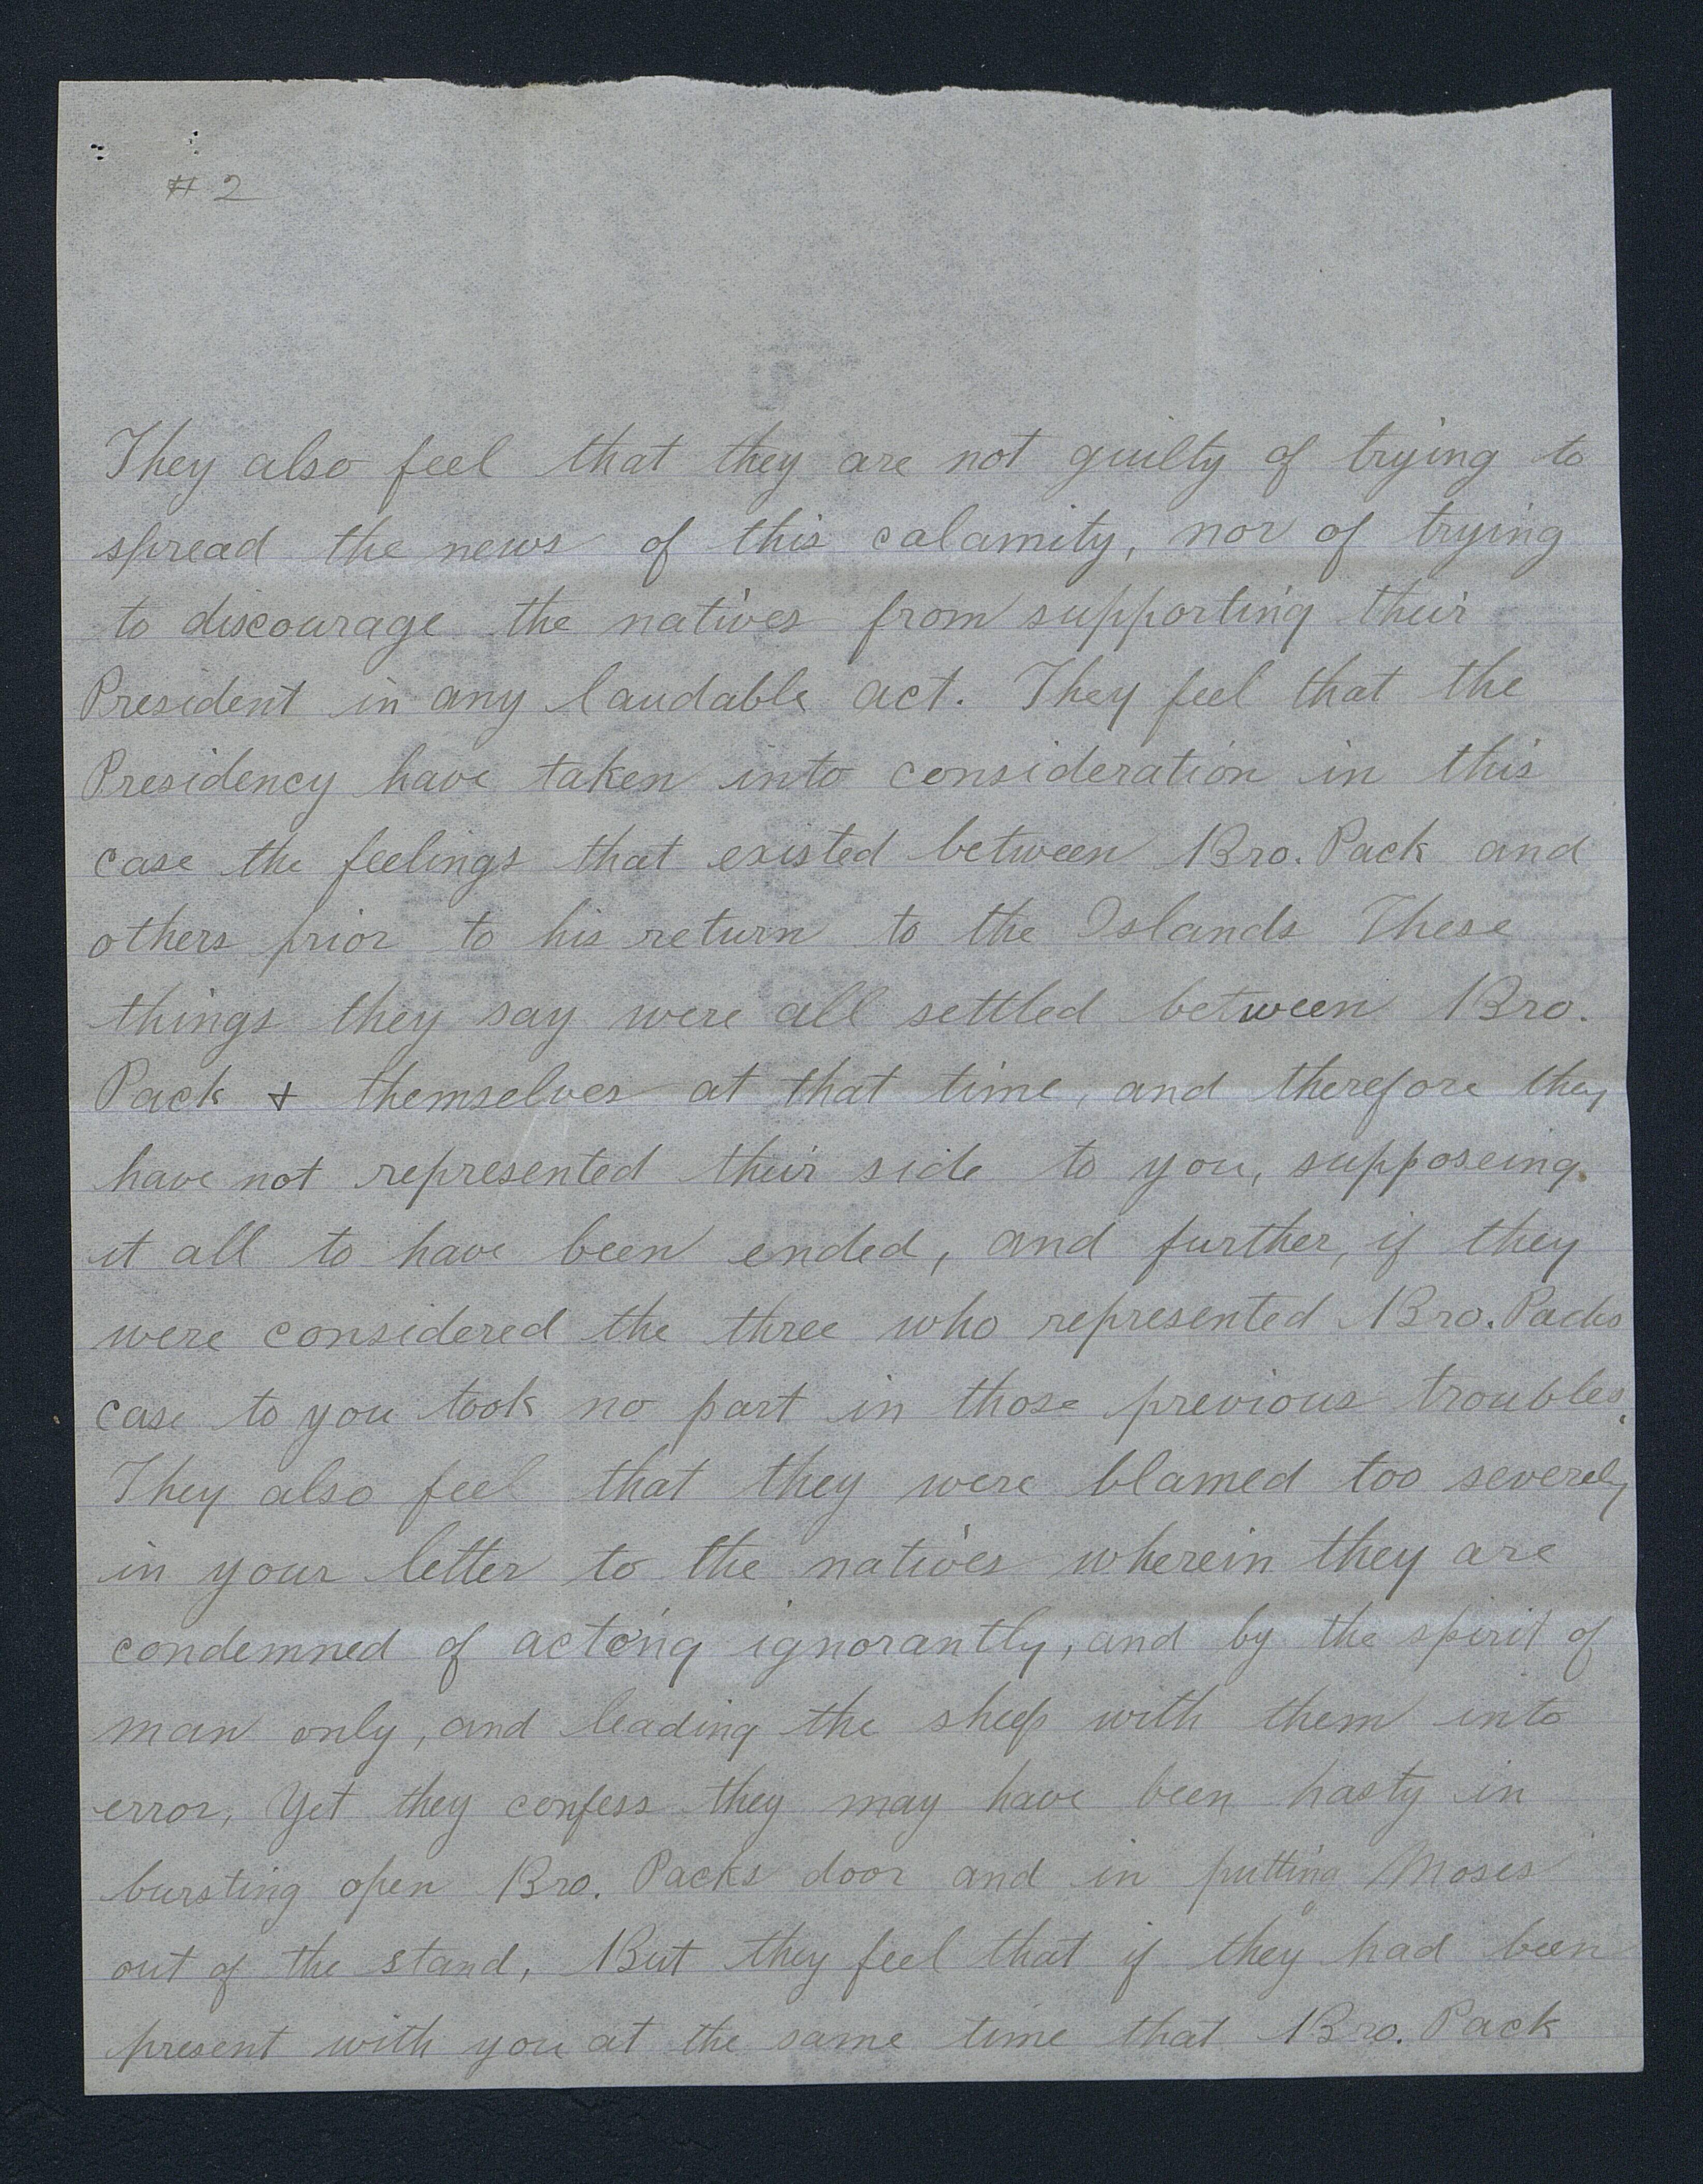 # 2
They also feel that they are not guilty of trying to
spread the news of this calamity, nor of trying
to discourage the natives from supporting their
President in any laudable act. They feel that the
Presidency have taken into consideration in this
case the feelings that existed between Bro. Pack and
others prior to his return to the Islands These
things they say were all settled between Bro.
Pack & themselves at that time, and therefore they
have not represented their side to you, supposeing
it all to have been ended, and further, if they
were considered the three who represented Bro. Packs
case to you took no part in those previous troubles.
They also feel that they were blamed too severely
in your letter to the natives wherein they are
condemned of acting ignorantly, and by the spirit of
man only, and leading the sheep with them into
error, Yet they confess they may have been hasty in
bursting open Bro. Packs door and in putting Moses
out of the stand, But they feel that if they had been
present with you at the same time that Bro. Pack